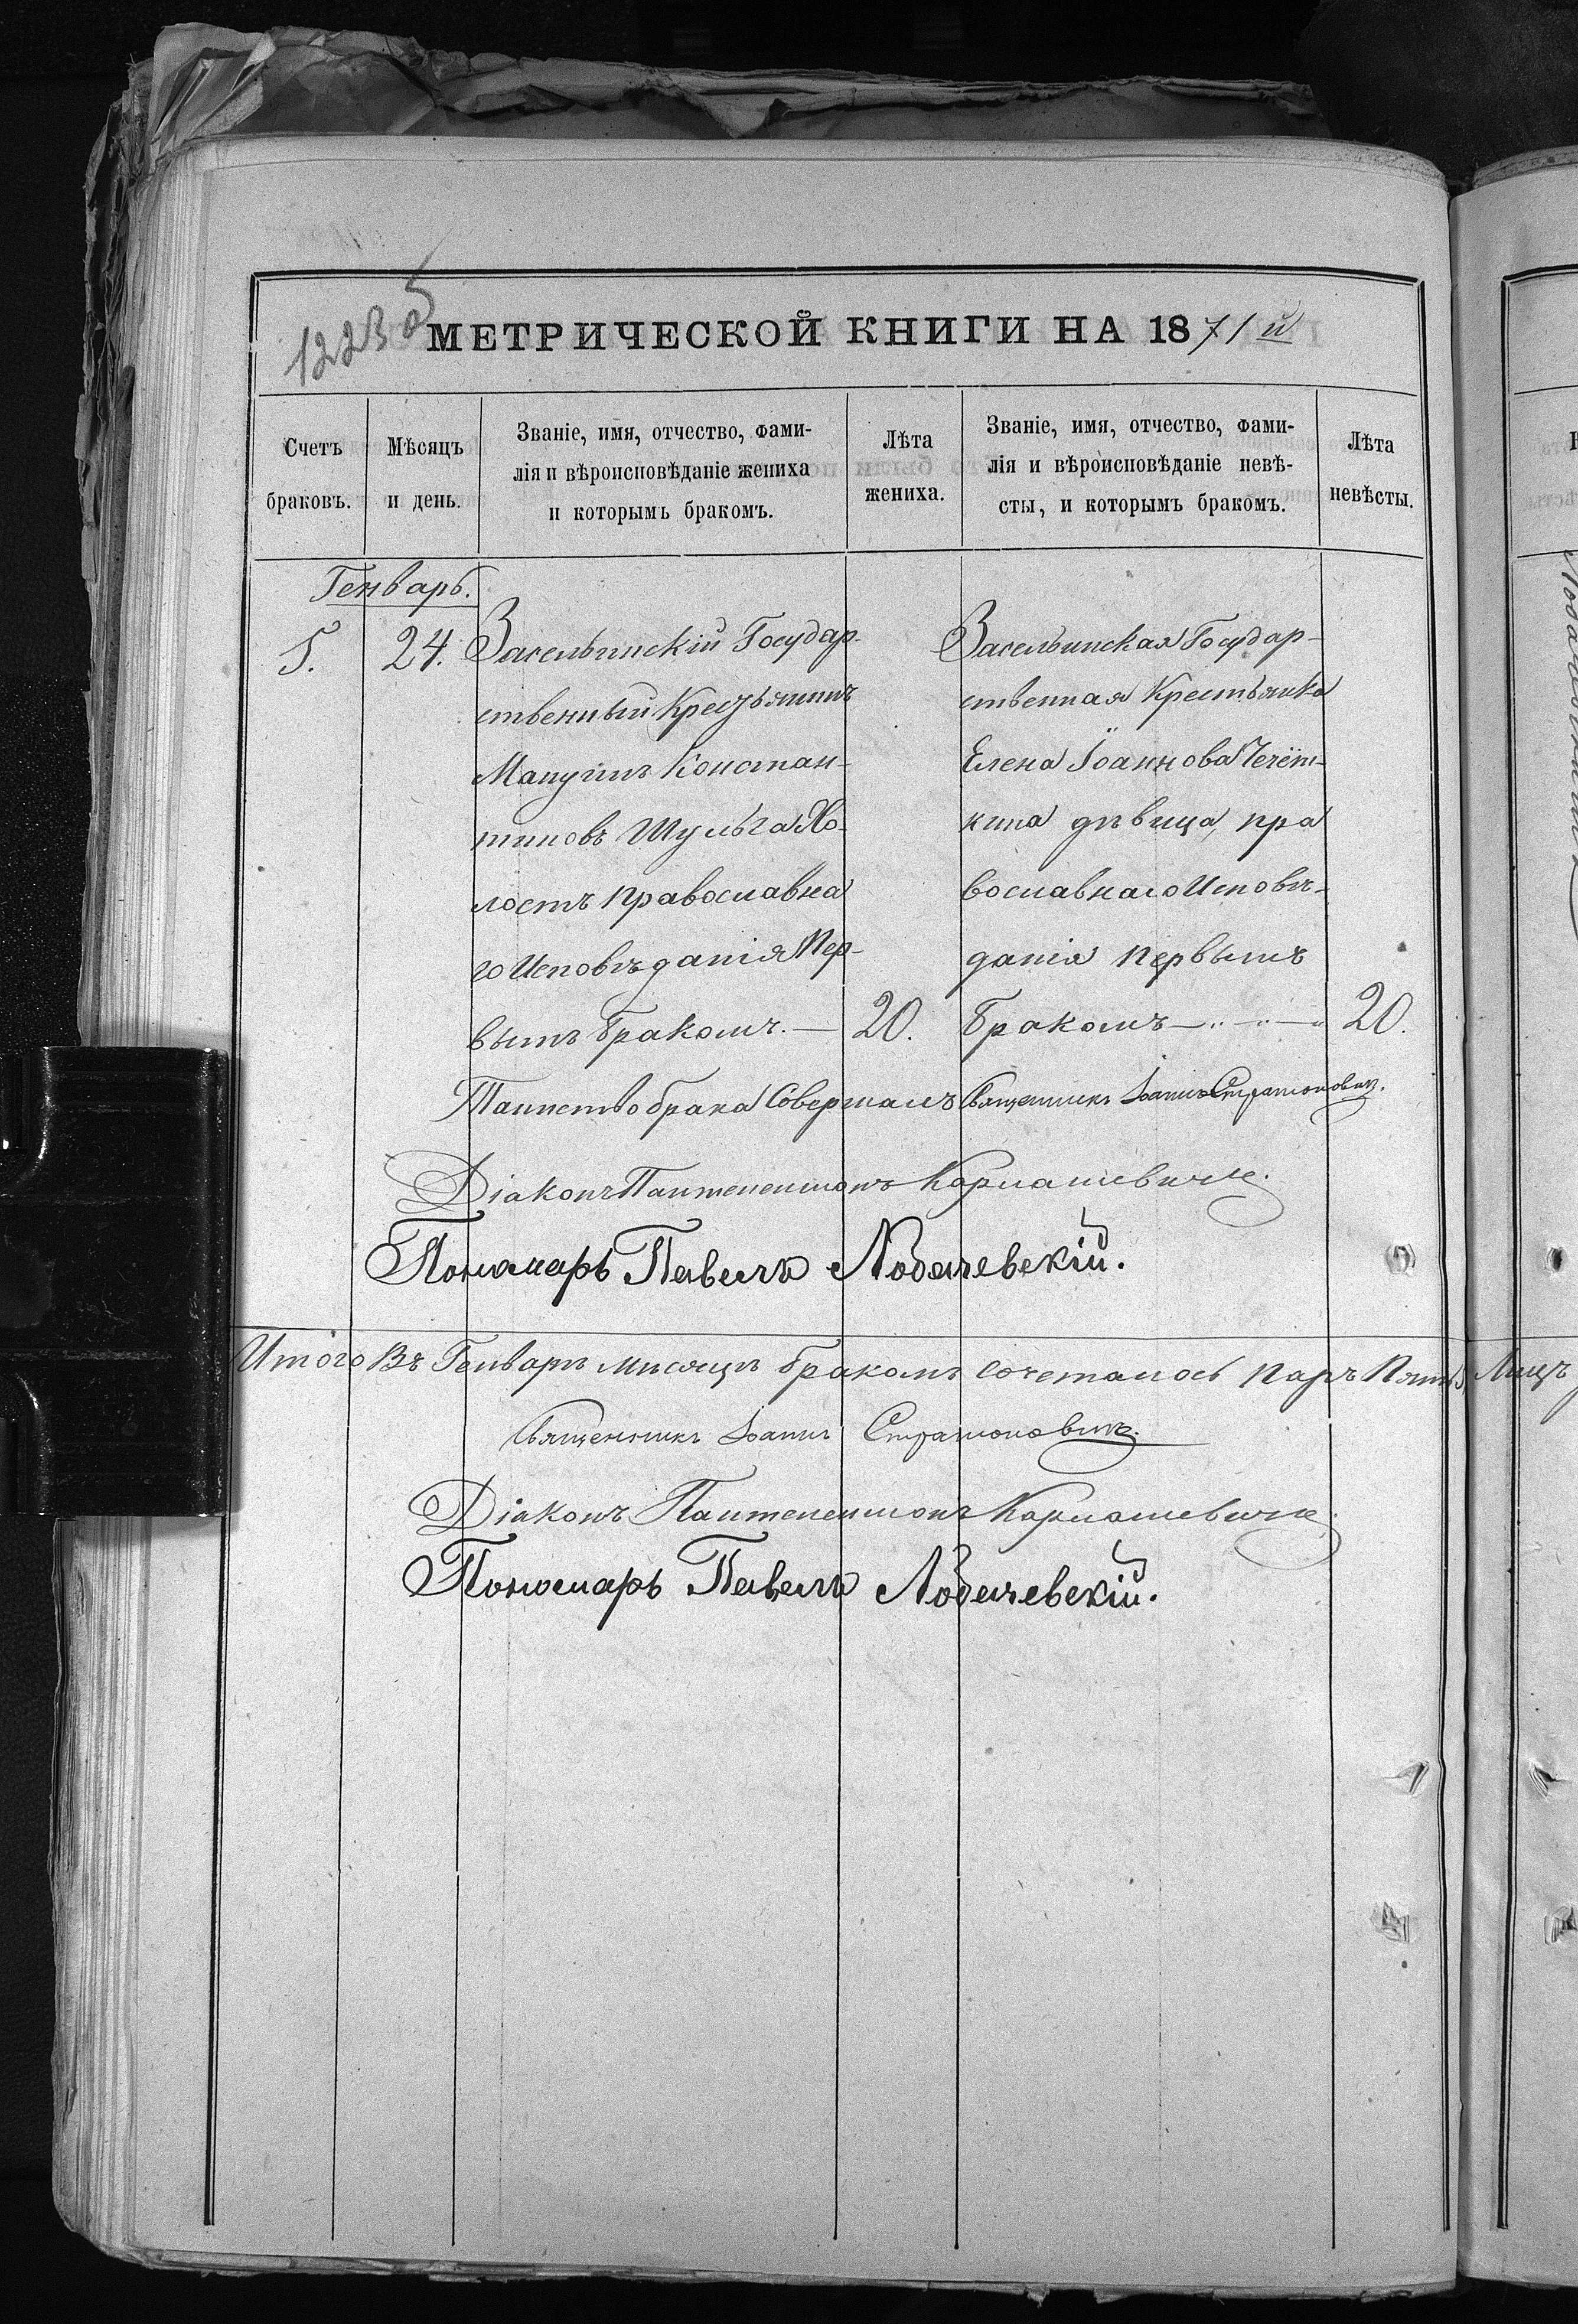 1223 об
МЕТРИЧЕСКОЙ КНИГИ НА 1871 й
Счетъ браковъ.
Мѣсяцъ и день.
Званіе, имя, отчество, фами-
лія и вѣроисповѣданіе жениха
и которымъ бракомъ.
Лѣта жениха.
Званіе, имя, отчество, фами-
лія и вѣроисповѣданіе невѣ-
сты, и которымъ бракомъ.
Лѣта невѣсты.
Генварь.
5. 24.
Засельинскій Государ-
ственный Крестьянинъ
Констан-
тиновъ Шульга Хо-
лостъ православна
го Исповѣданія Пер-
вымъ бракомъ. — 20.
Засельинская Государ-
ственная Крестьянка
Елена Іоаннова Чечёт-
кина дѣвица, пра
вославнаго Исповѣ-
данія первымъ
бракомъ 20.
Таинство брака Совершалъ Священникъ Іоаннъ Стратоновичъ.
Діаконъ Пантелеимонъ Кармашевичъ.
Пономарь Павелъ Лобачевскій.
Итого Въ Генварѣ мѣсяцѣ бракомъ сочеталось паръ Пять Лицъ
Священникъ Іоаннъ Стратоновичъ.
Діаконъ Пантелеимонъ Кармашевичъ.
Пономарь Павелъ Лобачевскій.